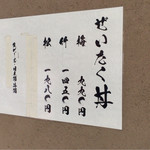 ぜいたく丼
梅 九九〇円
竹 一四五〇円
松 一九八〇円